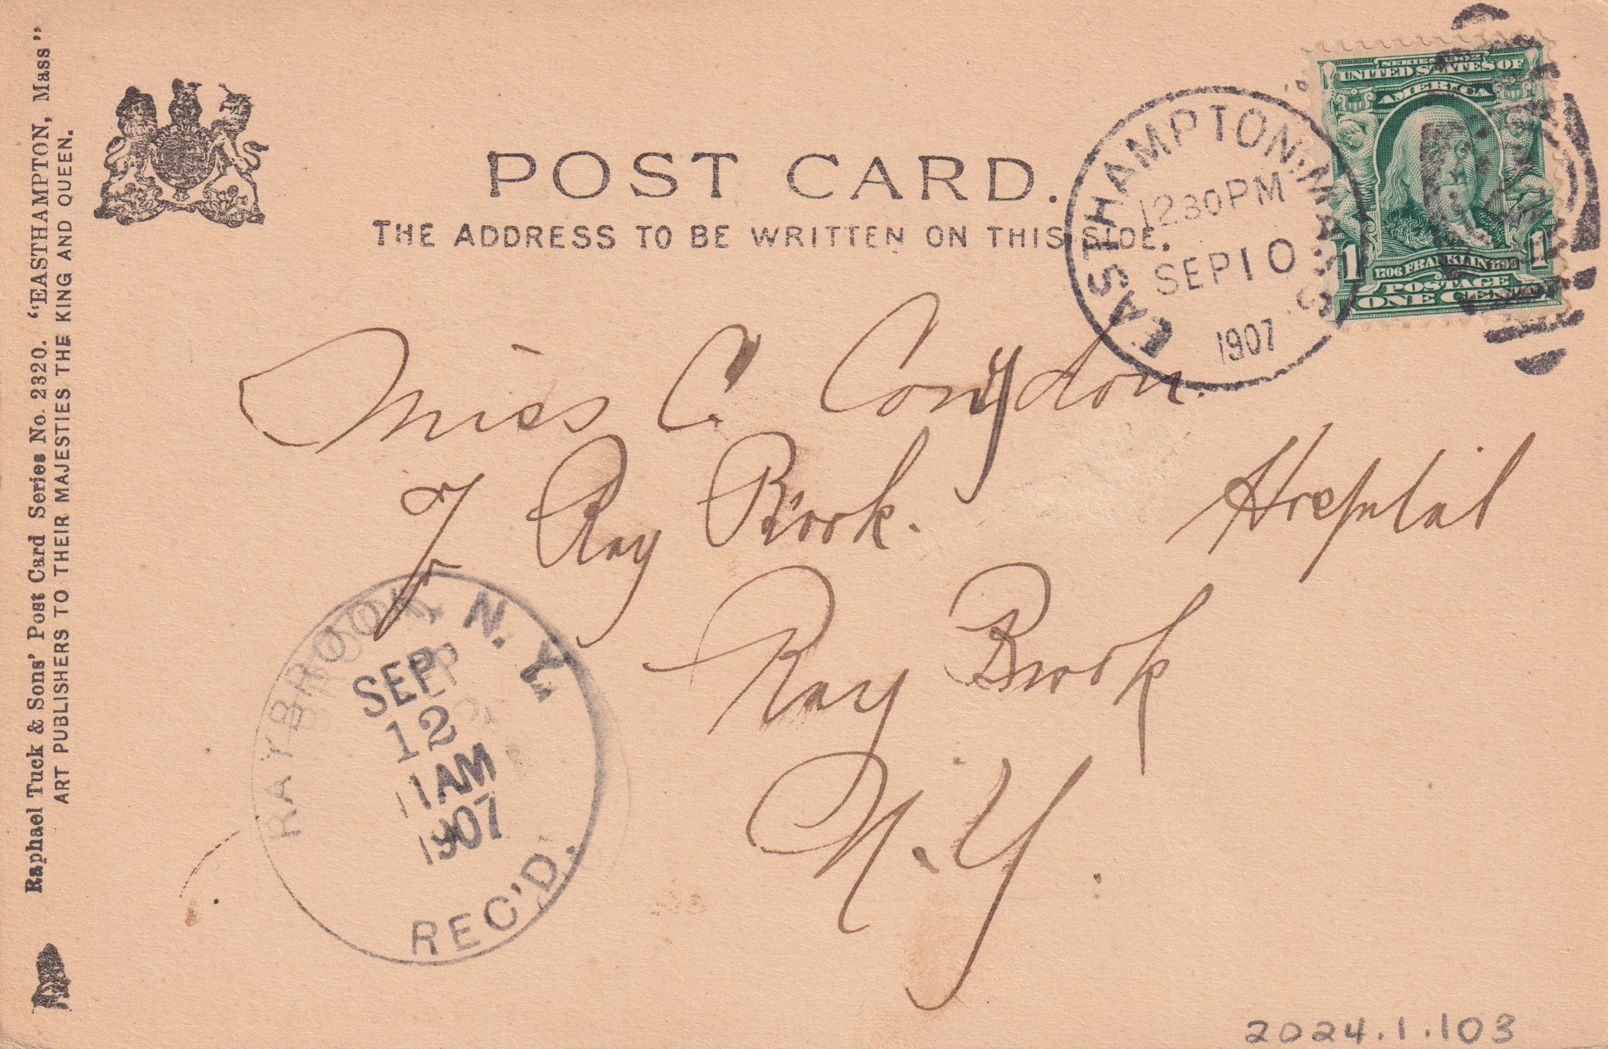 Raphael Tuck & Sons' Post Card Series No. 2320. "EASTHAMPTON, Mass"
ART PUBLISHERS TO THEIR MAJESTIES THE KING AND QUEEN.
POST CARD.
THE ADDRESS TO BE WRITTEN ON THIS SIDE.
EASTHAMPTON. MASS
12.30PM
SEP10
1907
SERIES 1902
UNITED STATES OF
AMERICA
1 1
1706 FRANKLIN 1790
POSTAGE
ONE CENT
Miss C. Congdon.
Ray Brook. Hospital
Ray Brook
N.Y.
RAYBROOK, N.Y.
SEP
12
11AM
1907
REC'D.
2024.1.103